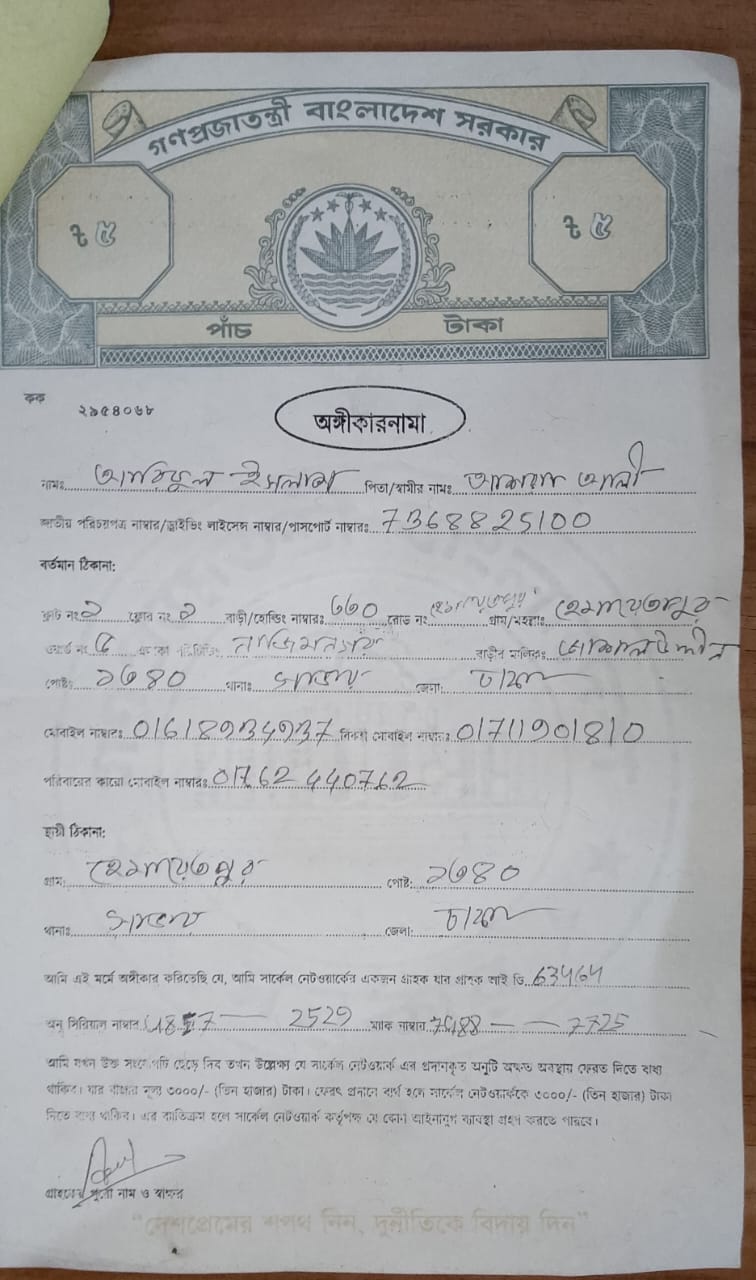 গণপ্রজাতন্ত্রী বাংলাদেশ সরকার
৳ ৫ ৳ ৫
পাঁচ টাকা
কক ২৯৫৪০৬৮
অঙ্গীকারনামা
নামঃ আরিফুল ইসলাম পিতা/স্বামীর নামঃ আলী
জাতীয় পরিচয়পত্র নাম্বার/ড্রাইভিং লাইসেন্স নাম্বার/পাসপোর্ট নাম্বারঃ 7368825100
বর্তমান ঠিকানা:
ফ্লাট নং ১ ফ্লোর নং ১ বাড়ী/হোল্ডিং নাম্বারঃ ৩৩০ রোড নং হেমায়েতপুর গ্রাম/মহল্লাঃ হেমায়েতপুর
ওয়ার্ড নং ৫ এলাকা বাড়ীর মালিকঃ
পোষ্টঃ ১৩৪০ থানাঃ সাভার জেলা: ঢাকা
মোবাইল নাম্বারঃ 01618934937 বিকাশ মোবাইল নাম্বারঃ 01711901810
পরিবারের কারো মোবাইল নাম্বারঃ 01762440762
স্থায়ী ঠিকানা:
গ্রাম: হেমায়েতপুর পোষ্ট: ১৩৪০
থানাঃ সাভার জেলা: ঢাকা
আমি এই মর্মে অঙ্গীকার করিতেছি যে, আমি সার্কেল নেটওয়ার্কের একজন গ্রাহক যার গ্রাহক আই ডি 63464
অনু সিরিয়াল নাম্বার 2529 ম্যাক নাম্বার 7725
আমি যখন উক্ত সংযোগটি ছেড়ে দিব তখন উল্লেক্ষ্য যে সার্কেল নেটওয়ার্ক এর প্রদানকৃত অনুটি অক্ষত অবস্থায় ফেরত দিতে বাধ্য
থাকিব। যার বাজার মূল্য ৩০০০/- (তিন হাজার) টাকা। ফেরৎ প্রদানে ব্যর্থ হলে সার্কেল নেটওয়ার্ককে ৩০০০/- (তিন হাজার) টাকা
দিতে বাধ্য থাকিব। এর ব্যতিক্রম হলে সার্কেল নেটওয়ার্ক কর্তৃপক্ষ যে কোন আইনানুগ ব্যাবস্থা গ্রহণ করতে পারবে।
গ্রাহকের পুরো নাম ও স্বাক্ষর
“দেশপ্রেমের শপথ নিন, দুর্নীতিকে বিদায় দিন”